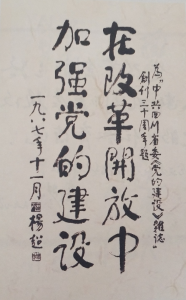 为“中共四川省委《党的建设》杂志”
创刊三十周年题
在改革開放中
加强党的建设
一九八七年十一月 楊超